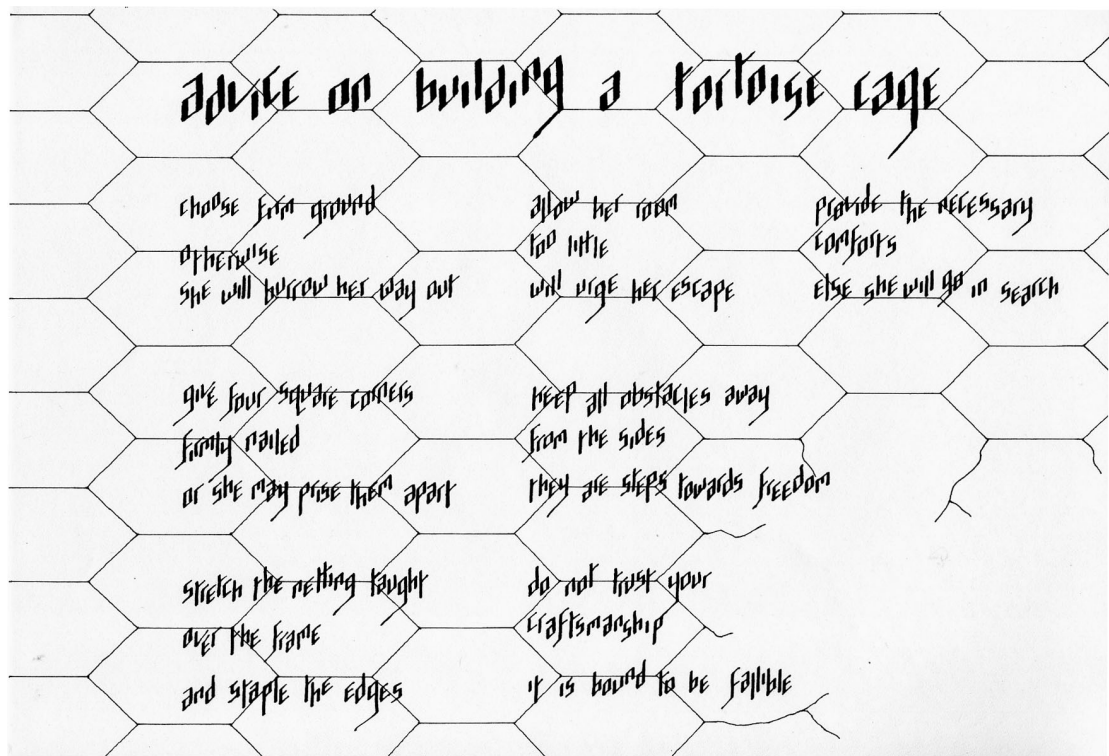 advice on building a tortoise cage
choose firm ground
otherwise
she will burrow her way out
give four square corners
firmly nailed
or she may prise them apart
stretch the netting taught
over the frame
and staple the edges
allow her room
too little
will urge her escape
keep all obstacles away
from the sides
they are steps towards freedom
do not trust your
craftsmanship
it is bound to be fallible
provide the necessary
comforts
else she will go in search